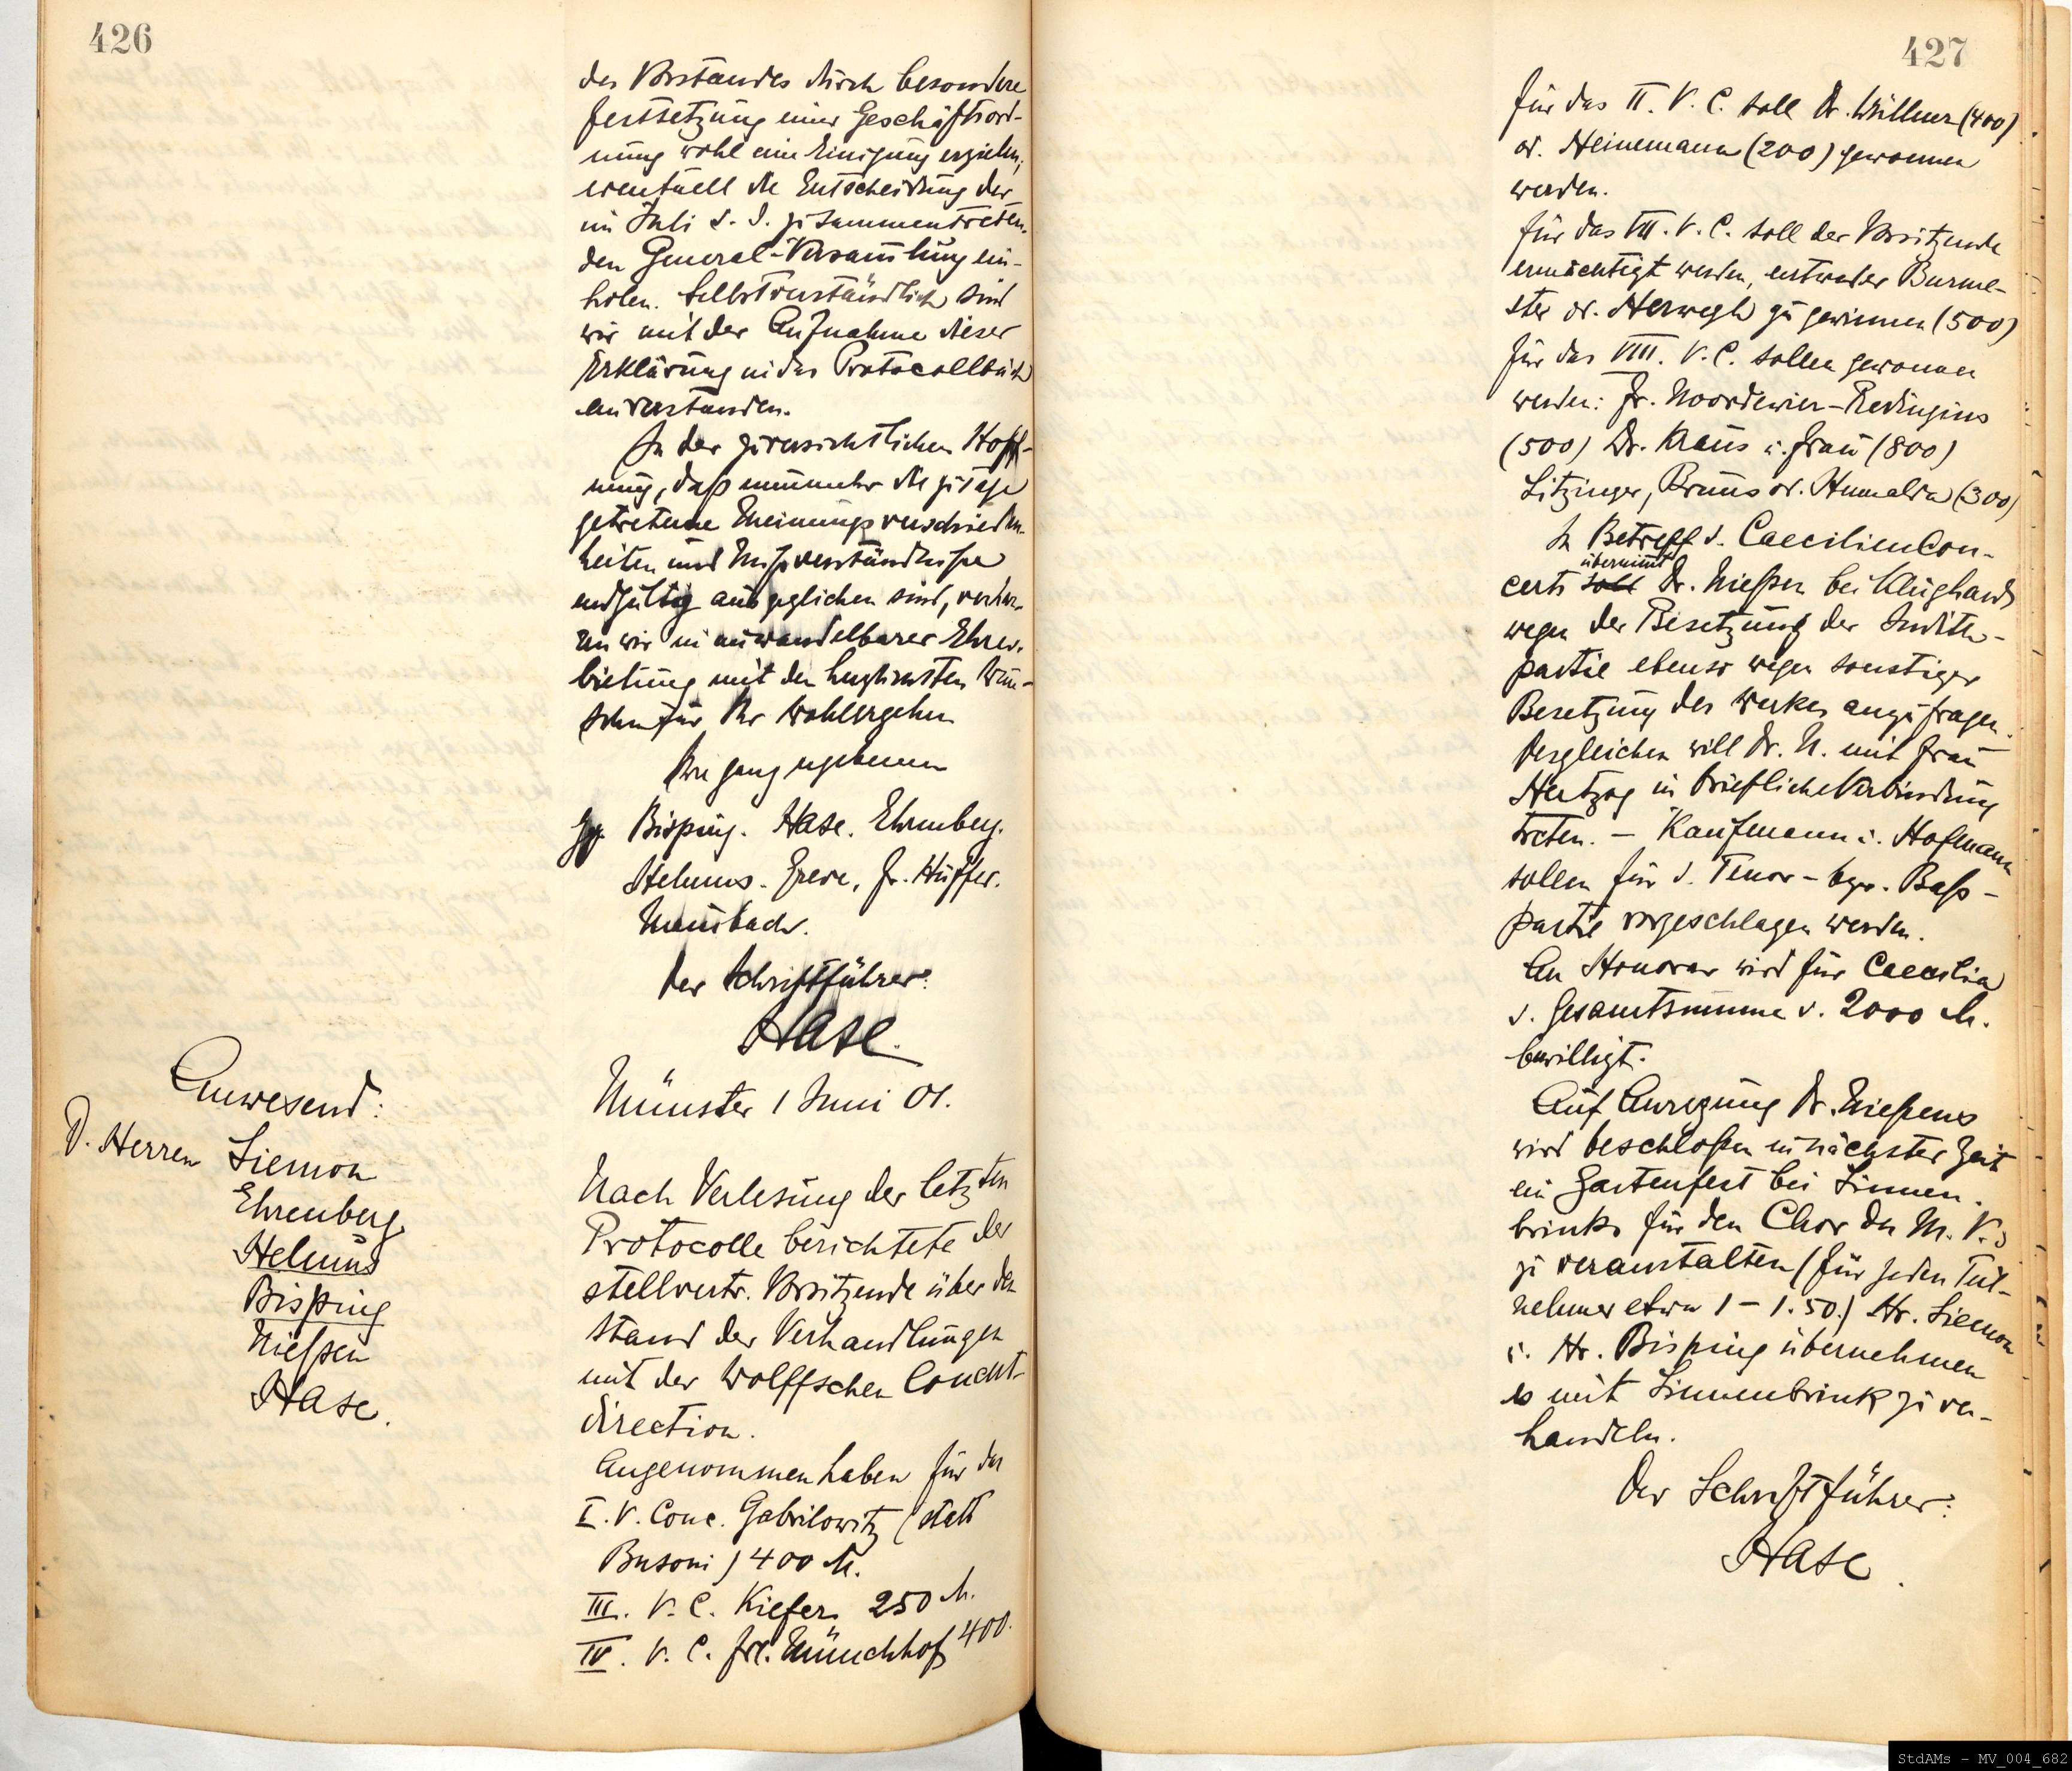 426
des Vorstandes durch besondere
Festsetzung einer Geschäftsord-
nung wohl eine Einigung erzielen,
eventuell die Entscheidung der
im Juli d. J. zusammentreten-
den General-Versam̄lung ein-
holen. Selbstverständlich sind
wir mit der Aufnahme dieser
Erklärung in das Protocollbuch
einverstanden.
In der zuversichtlichen Hoff-
nung, daß nunmehr die zutage
getretene Meinungsverschieden-
heiten und Mißverständnisse
endgültig ausgeglichen sind, verhar-
ren wir in unwandelbarer Ehrer-
bietung mit den herzlichsten Wün-
schen für Ihr Wohlergehen
Ihre ganz ergebenen
gz. Bisping. Hase. Ehrenberg.
Helmus. Greve, Fr. Hüffer.
Mausbach.
Der Schriftführer:
Hase.
Anwesend:
D. Herren Siemon
Ehrenberg
Helmus
Bisping
Nießen
Hase.
Münster 1 Juni 01.
Nach Verlesung der letzten
Protocolle berichtete der
stellvertr. Vorsitzende über den
Stand der Verhandlungen
mit der Wolffschen Concert-
direction.
Angenommen haben für das
I. V. Conc. Gabrilowitz (statt
Busoni) 400 M.
III. V. C. Kiefer 250 M.
IV. V. C. Frl. Münchhof 400.
427
Für das II. V. C. soll Dr. Wüllner (400)
od. Heinemann (200) gewonnen
werden.
Für das VII. V. C. soll der Vorsitzende
ermächtigt werden, entweder Burme-
ster od. Herwegh zu gewinnen (500)
Für das VIII. V. C. sollen gewonnen
werden: Fr. Noordewier-Redingius
(500) Dr. Kraus u. Frau (800)
Litzinger, Bruns od. Humalda (300)
In Betreff d. CaecilienCon-
certs soll übernimmt Dr. Nießen bei Klughardt
wegen der Besetzung der Judith-
partie ebenso wegen sonstiger
Besetzung des Werkes anzufragen.
Desgleichen will Dr. N. mit Frau
Hertzog in briefliche Verbindung
treten. – Kaufmann u. Hofmann
sollen für d. Tenor- bzw. Baß-
partie vorgeschlagen werden.
An Honorar wird für Caecilia
d. Gesamtsumme v. 2000 M.
bewilligt.
Auf Anregung Dr. Nießens
wird beschloßen in nächster Zeit
ein Gartenfest bei Linnen-
brink für den Chor des M. V.s
zu veranstalten (für jeden Teil-
nehmer etwa 1 – 1.50.) Hr. Siemon
u. Hr. Bisping übernehmen
es mit Linnenbrink zu ver-
handeln.
Der Schriftführer:
Hase.
StdAMs - MV_004_682